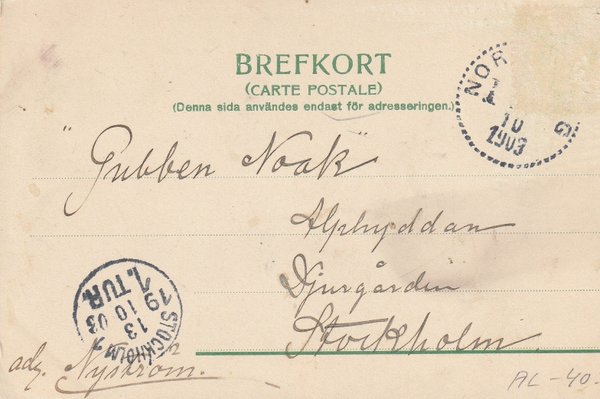 BREFKORT
(CARTE POSTALE)
(Denna sida användes endast för adresseringen.)
NOR
10
1903
"Gubben Noak"
Alphyddan
Djurgården
Stockholm.
STOCKHOLM 1
13
10 03
19
1. TUR.
adr. Nyström.
AL-40.